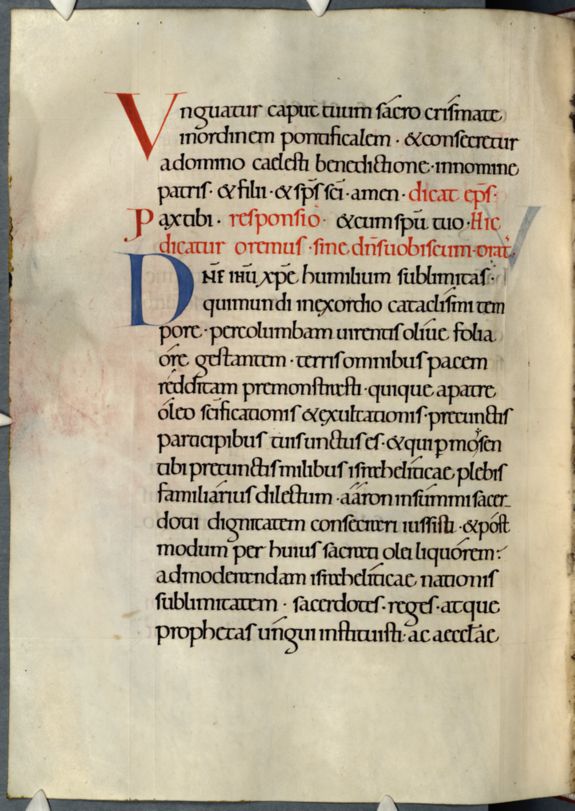 Unguatur caput tuum sacro crismate
inordinem pontificalem · & consecretur
a domino caelesti benedictione · innomine
patris · & filii · & sp̄s sc̄i · amen · dicat ep̄s·
Pax tibi · responsio · & cum spū tuo · Hic
dicatur oremus · sine dn̄s uobiscum · orat̄·
DN̄E IHŪ XP̄E humilium sublimitas ·
qui mundi inexordio cataclismi tem
pore · per columbam uirentis oliuę folia
ore gestantem · terris omnibus pacem
redditam premonstrasti · quique a patre
oleo sc̄ificationis & exultationis · precunctis
participibus tuis unctus es · & qui p̱ moysen
tibi precunctis milibus israheliticae plebis
familiarius dilectum · aaron insummi sacer-
dotii dignitatem consecrari iussisti · & post
modum per huius sacrati olei liquorem ·
ad moderandam israheliticae nationis
sublimitatem · sacerdotes · reges · atque
prophetas ungui instituisti · ac aecclae